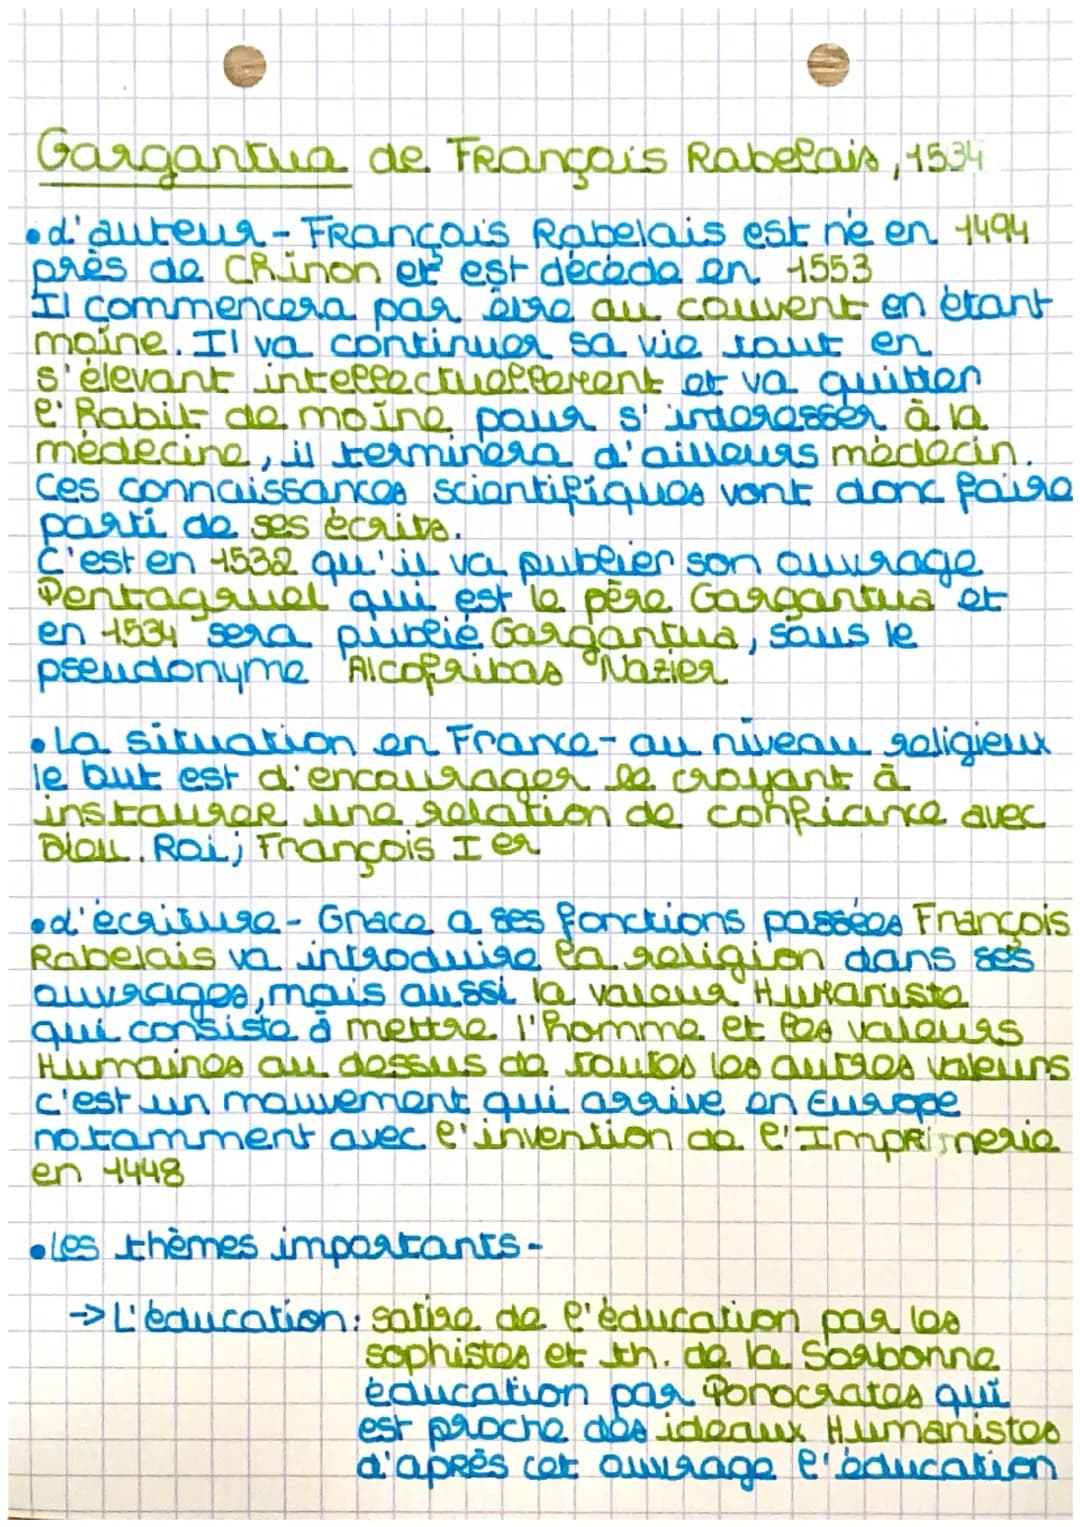 Gargantua de François Rabelais, 1534
• L'auteur - François Rabelais est né en 1494
près de Chinon et est décédé en 1553
Il commencera par être au couvent en étant
moine. Il va continuer sa vie tout en
s'élevant intellectuellement et va quitter
l'habit de moine pour s'interesser à la
médecine, il terminera d'ailleurs médecin.
Ces connaissances scientifiques vont donc faire
parti de ses écrits.
C'est en 1532 qu'il va publier son ouvrage
"Pentagruel" qui est le père Gargantua et
en 1534 sera publié Gargantua, sous le
pseudonyme "Alcofribas Nazier
• La situation en France - au niveau religieux
le but est d'encourager le croyant à
instaurer une relation de confiance avec
Dieu. Roi; François Ier
• L'écriture - Grace a ses fonctions passées François
Rabelais va introduire la religion dans ses
ouvrages, mais aussi la valeur Humaniste
qui consiste à mettre l'homme et les valeurs
Humaines au dessus de toutes les autres valeurs
c'est un mouvement qui arrive en Europe
notamment avec l'invention de l'Imprimerie
en 1448
• Les thèmes importants -
→ L'éducation: satire de l'éducation par les
sophistes et th. de la Sorbonne
éducation par Ponocrates qui
est proche des ideaux Humanistes
d'après cet ouvrage l'éducation